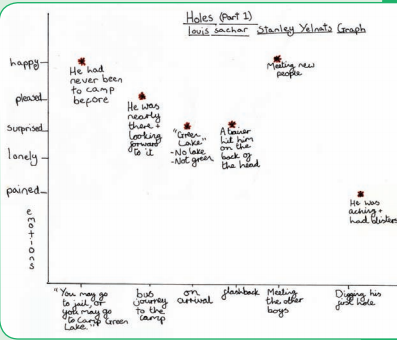 Holes (Part 1)
Louis Sachar Stanley Yelnats Graph
happy
pleased
surprised
lonely
pained
emotions
He had
never been
to camp
before
He was
nearly
there +
looking
forward
to it
"Green
Lake"
- No lake
- Not green
A trainer
hit him
on the
back of
the head
Meeting new
people
He was
aching +
had blisters
"You may go
to jail, or
you may go
to Camp Green
Lake."
bus
journey
to the
camp
on
arrival
flashback
Meeting
the other
boys
Digging his
first hole